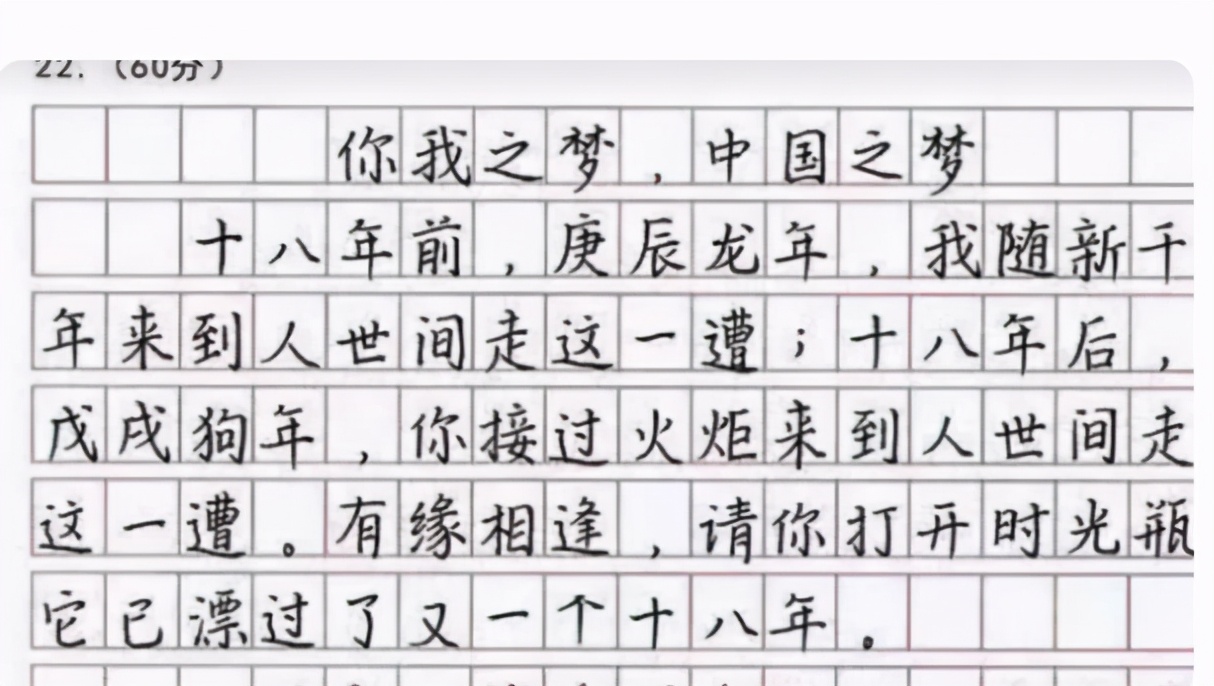 22.（60分）
你我之梦，中国之梦
十八年前，庚辰龙年，我随新千
年来到人世间走这一遭；十八年后，
戊戌狗年，你接过火炬来到人世间走
这一遭。有缘相逢，请你打开时光瓶
它已漂过了又一个十八年。